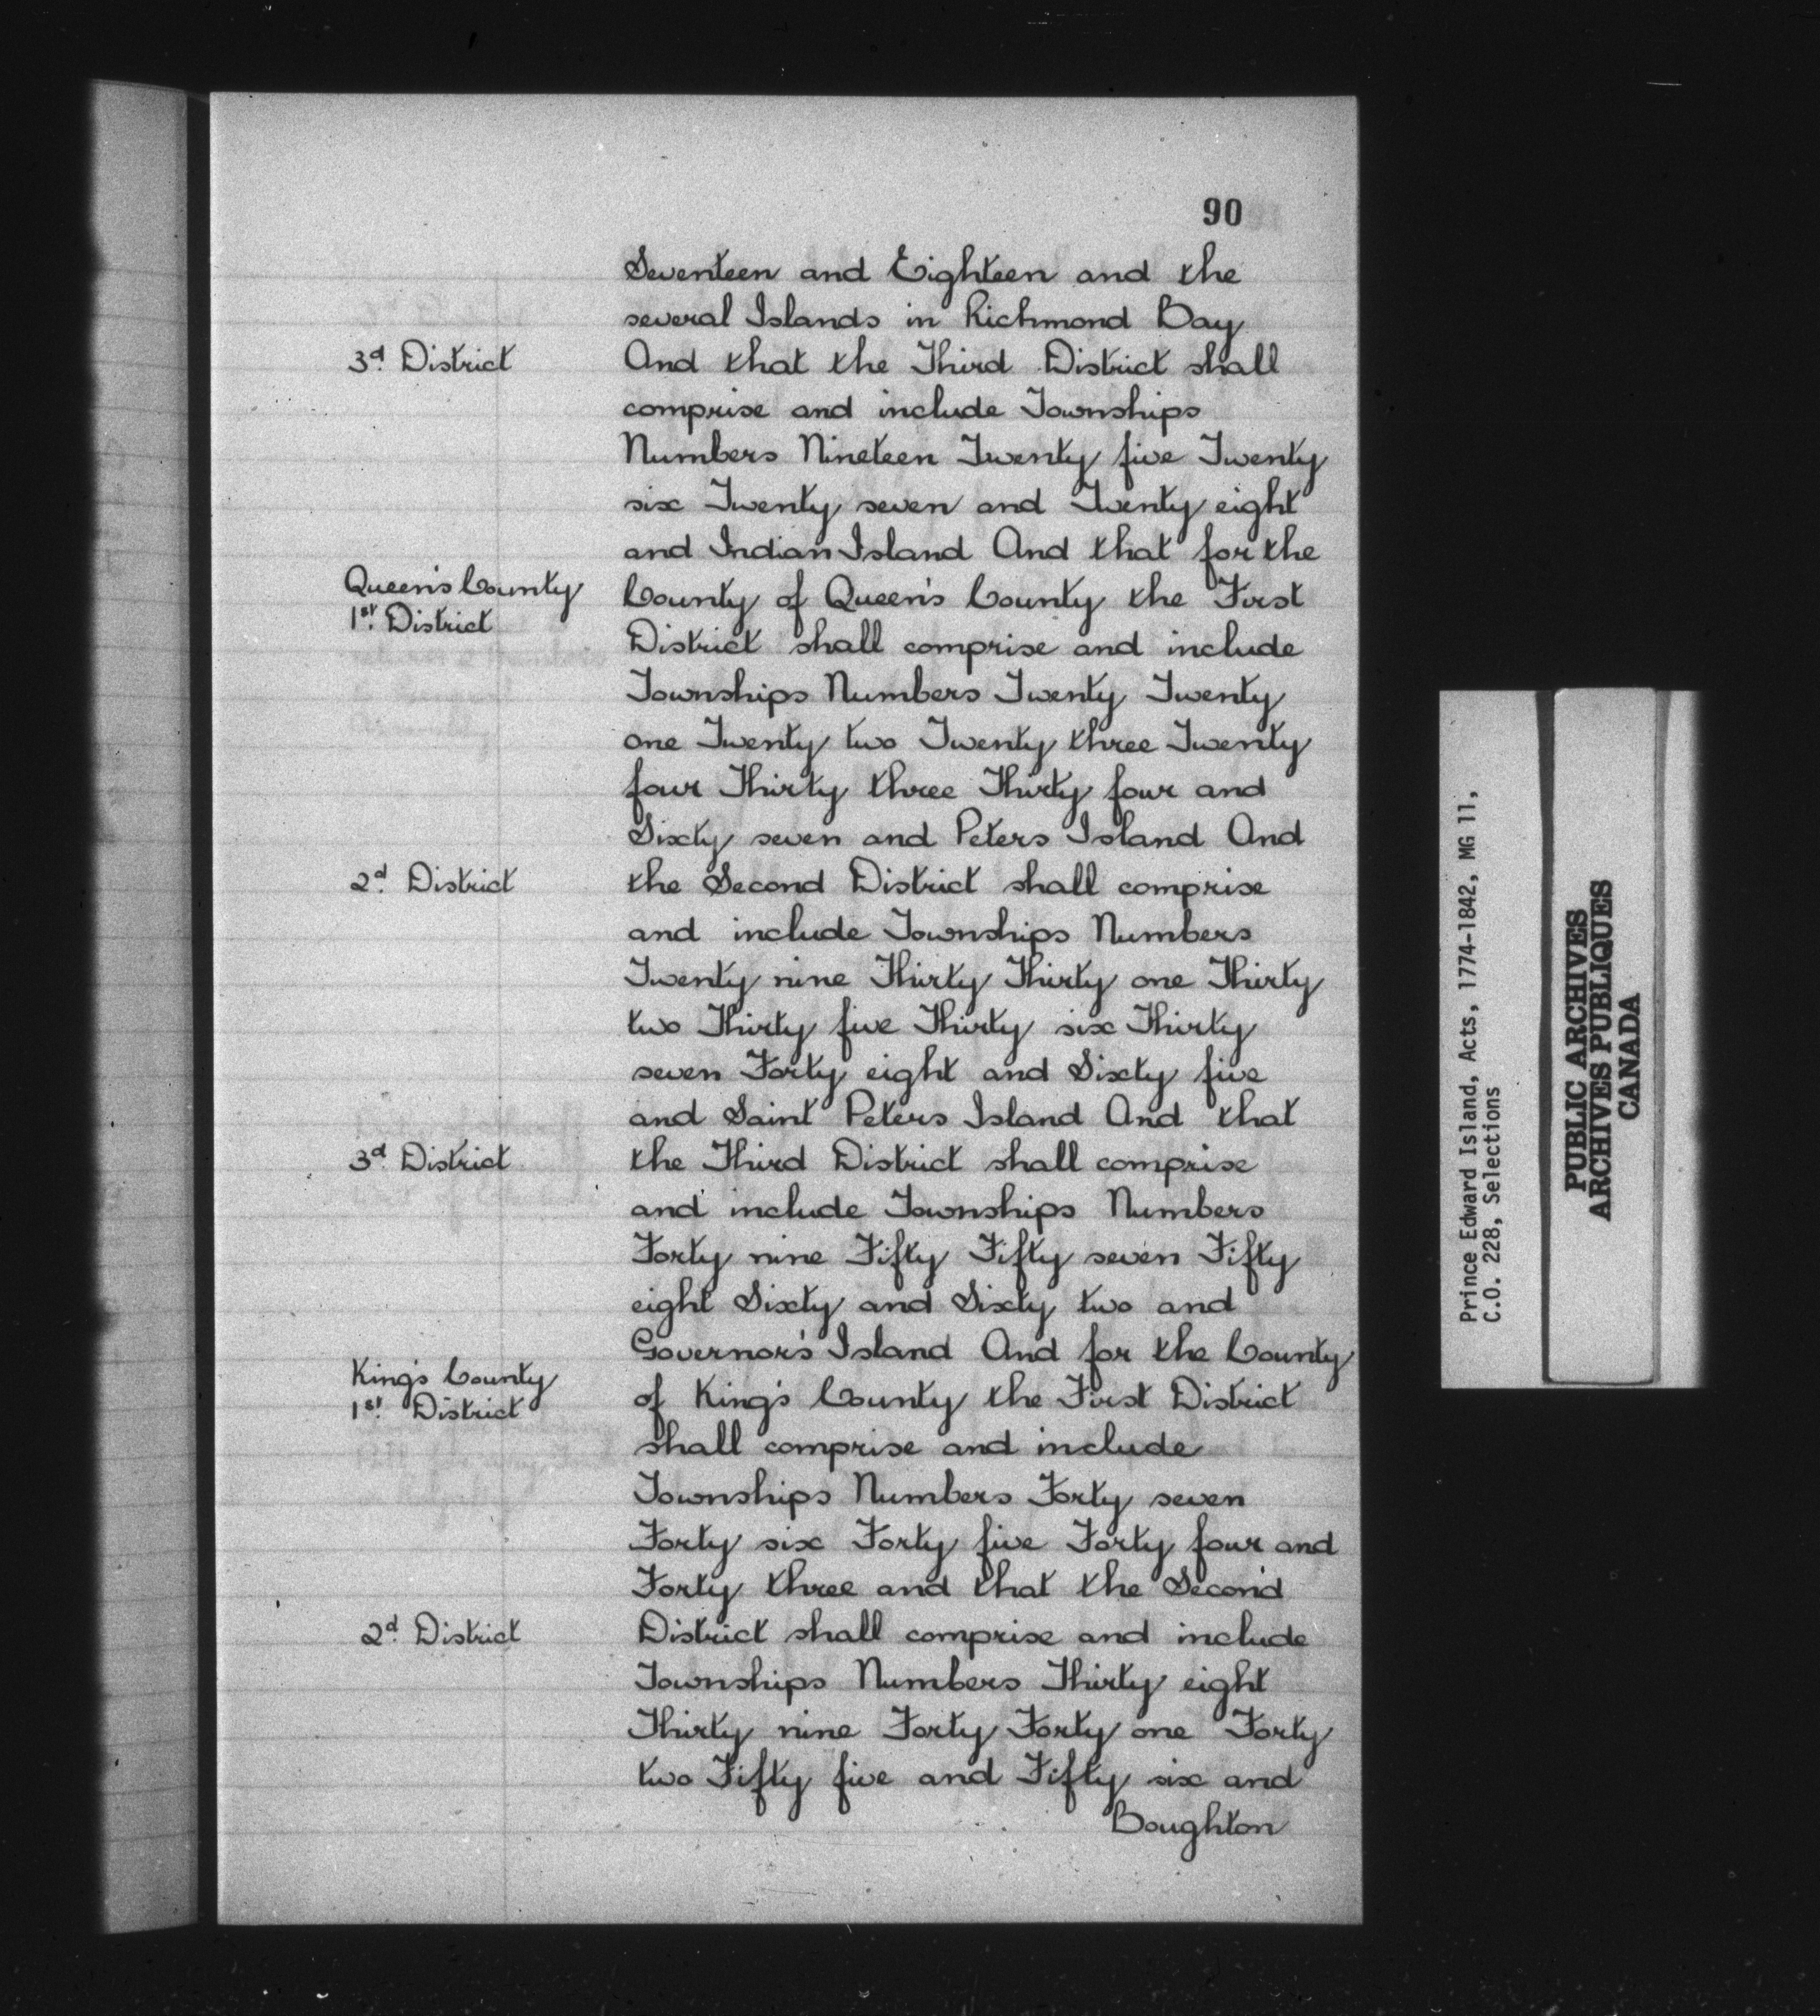 90
Seventeen and Eighteen and the
several Islands in Richmond Bay
3d. District
And that the Third District shall
comprise and include Townships
Numbers Nineteen Twenty five Twenty
six Twenty seven and Twenty eight
and Indian Island And that for the
Queen's County
1st. District
County of Queen's County the First
District shall comprise and include
Townships Numbers Twenty Twenty
one Twenty two Twenty three Twenty
four Thirty three Thirty four and
Sixty seven and Peters Island And
2d. District
the Second District shall comprise
and include Townships Numbers
Twenty nine Thirty Thirty one Thirty
two Thirty five Thirty six Thirty
seven Forty eight and Sixty five
and Saint Peters Island And that
3d. District
the Third District shall comprise
and include Townships Numbers
Forty nine Fifty Fifty seven Fifty
eight Sixty and Sixty two and
Governor's Island And for the County
King's County
1st. District
of King's County the First District
shall comprise and include
Townships Numbers Forty seven
Forty six Forty five Forty four and
Forty three and that the Second
2d. District
District shall comprise and include
Townships Numbers Thirty eight
Thirty nine Forty Forty one Forty
two Fifty five and Fifty six and
Boughton
Prince Edward Island, Acts, 1774-1842, MG 11,
C.O. 228, Selections
PUBLIC ARCHIVES
ARCHIVES PUBLIQUES
CANADA